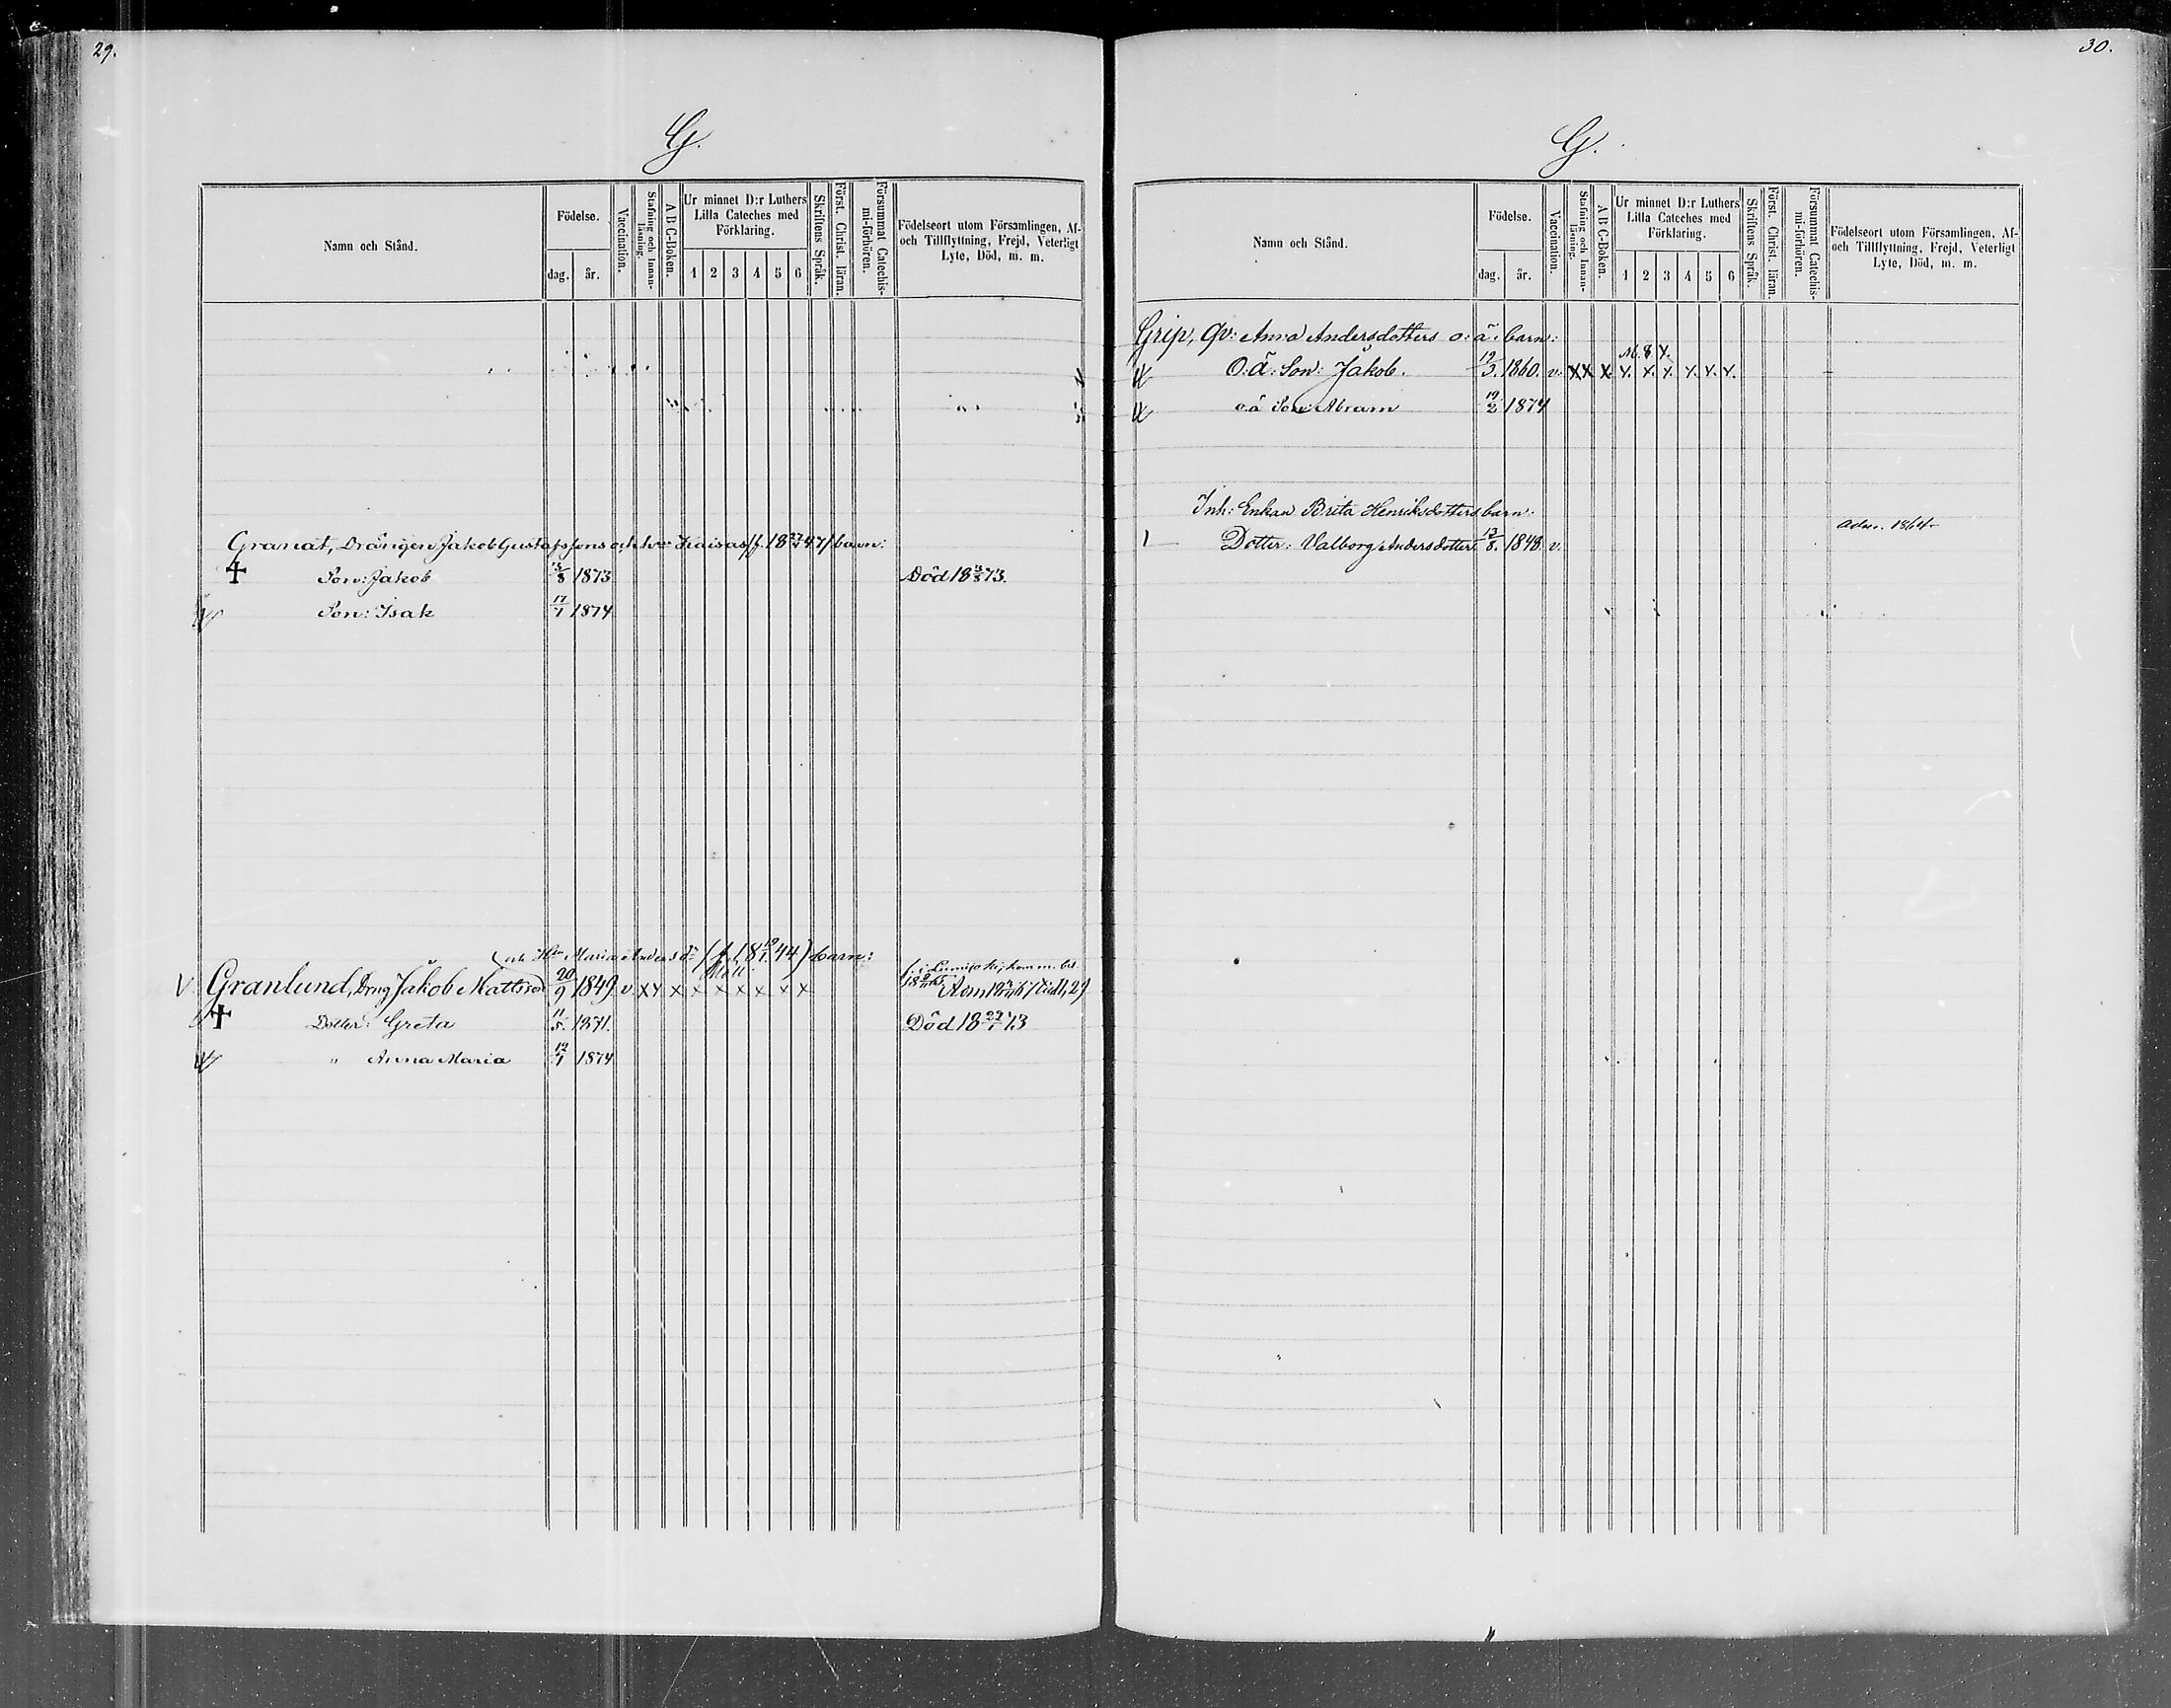 29.
G.
Namn och Stånd.
Födelse.
dag.
år.
Vaccination.
Stafning och Innan-
läsning.
A B C-Boken.
Ur minnet D:r Luthers
Lilla Cateches med
Förklaring.
1 2 3 4 5 6
Skriftens Språk.
Först. Christ. läran.
Försummat Catechis-
mi-förhören.
Födelseort utom Församlingen, Af-
och Tillflyttning, Frejd, Veterligt
Lyte, Död, m. m.
Granat, Drängen Jakob Gustafssons och hu Kaisas (f. 18 47) barn:
Son: Jakob 1873 Död 18 73.
Son: Isak 17/1 1874
Maria Anders dr (f. 18 44) barn:
V Granlund, Drng Jakob Mattsson 20/9 1849 v. x x x x x x x x x
Dotter: Greta 11/5. 1871. Död 18 29/1 73
" Anna Maria 12/1 1874
30.
G.
Namn och Stånd.
Födelse.
dag.
år.
Vaccination.
Stafning och Innan-
läsning.
A B C-Boken.
Ur minnet D:r Luthers
Lilla Cateches med
Förklaring.
1 2 3 4 5 6
Skriftens Språk.
Först. Christ. läran.
Försummat Catechis-
mi-förhören.
Födelseort utom Församlingen, Af-
och Tillflyttning, Frejd, Veterligt
Lyte, Död, m. m.
Grip, Qv: Anna Andersdotters o: ä: barn:
O. ä: Son: Jakob. 19/3. 1860. v. x x x x. x. x. x. x. x.
o ä Son: Abram 19/2 1874
Inh: Enkan Brita Henriksdotters barn:
Dotter: Valborg Andersdotter 13/8. 1848. v. 1864